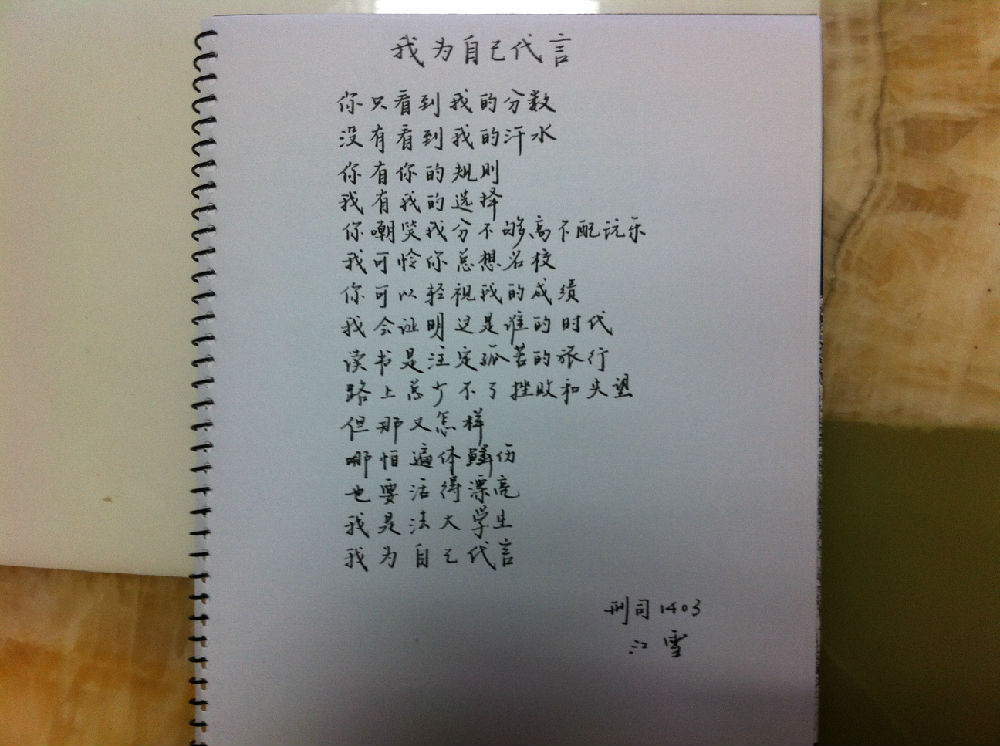 我为自己代言
你只看到我的分数
没有看到我的汗水
你有你的规则
我有我的选择
你嘲笑我分不够高不配玩乐
我可怜你总想名校
你可以轻视我的成绩
我会证明这是谁的时代
读书是注定孤苦的旅行
路上总少不了挫败和失望
但那又怎样
哪怕遍体鳞伤
也要活得漂亮
我是法大学生
我为自己代言
刑司1403
江雪